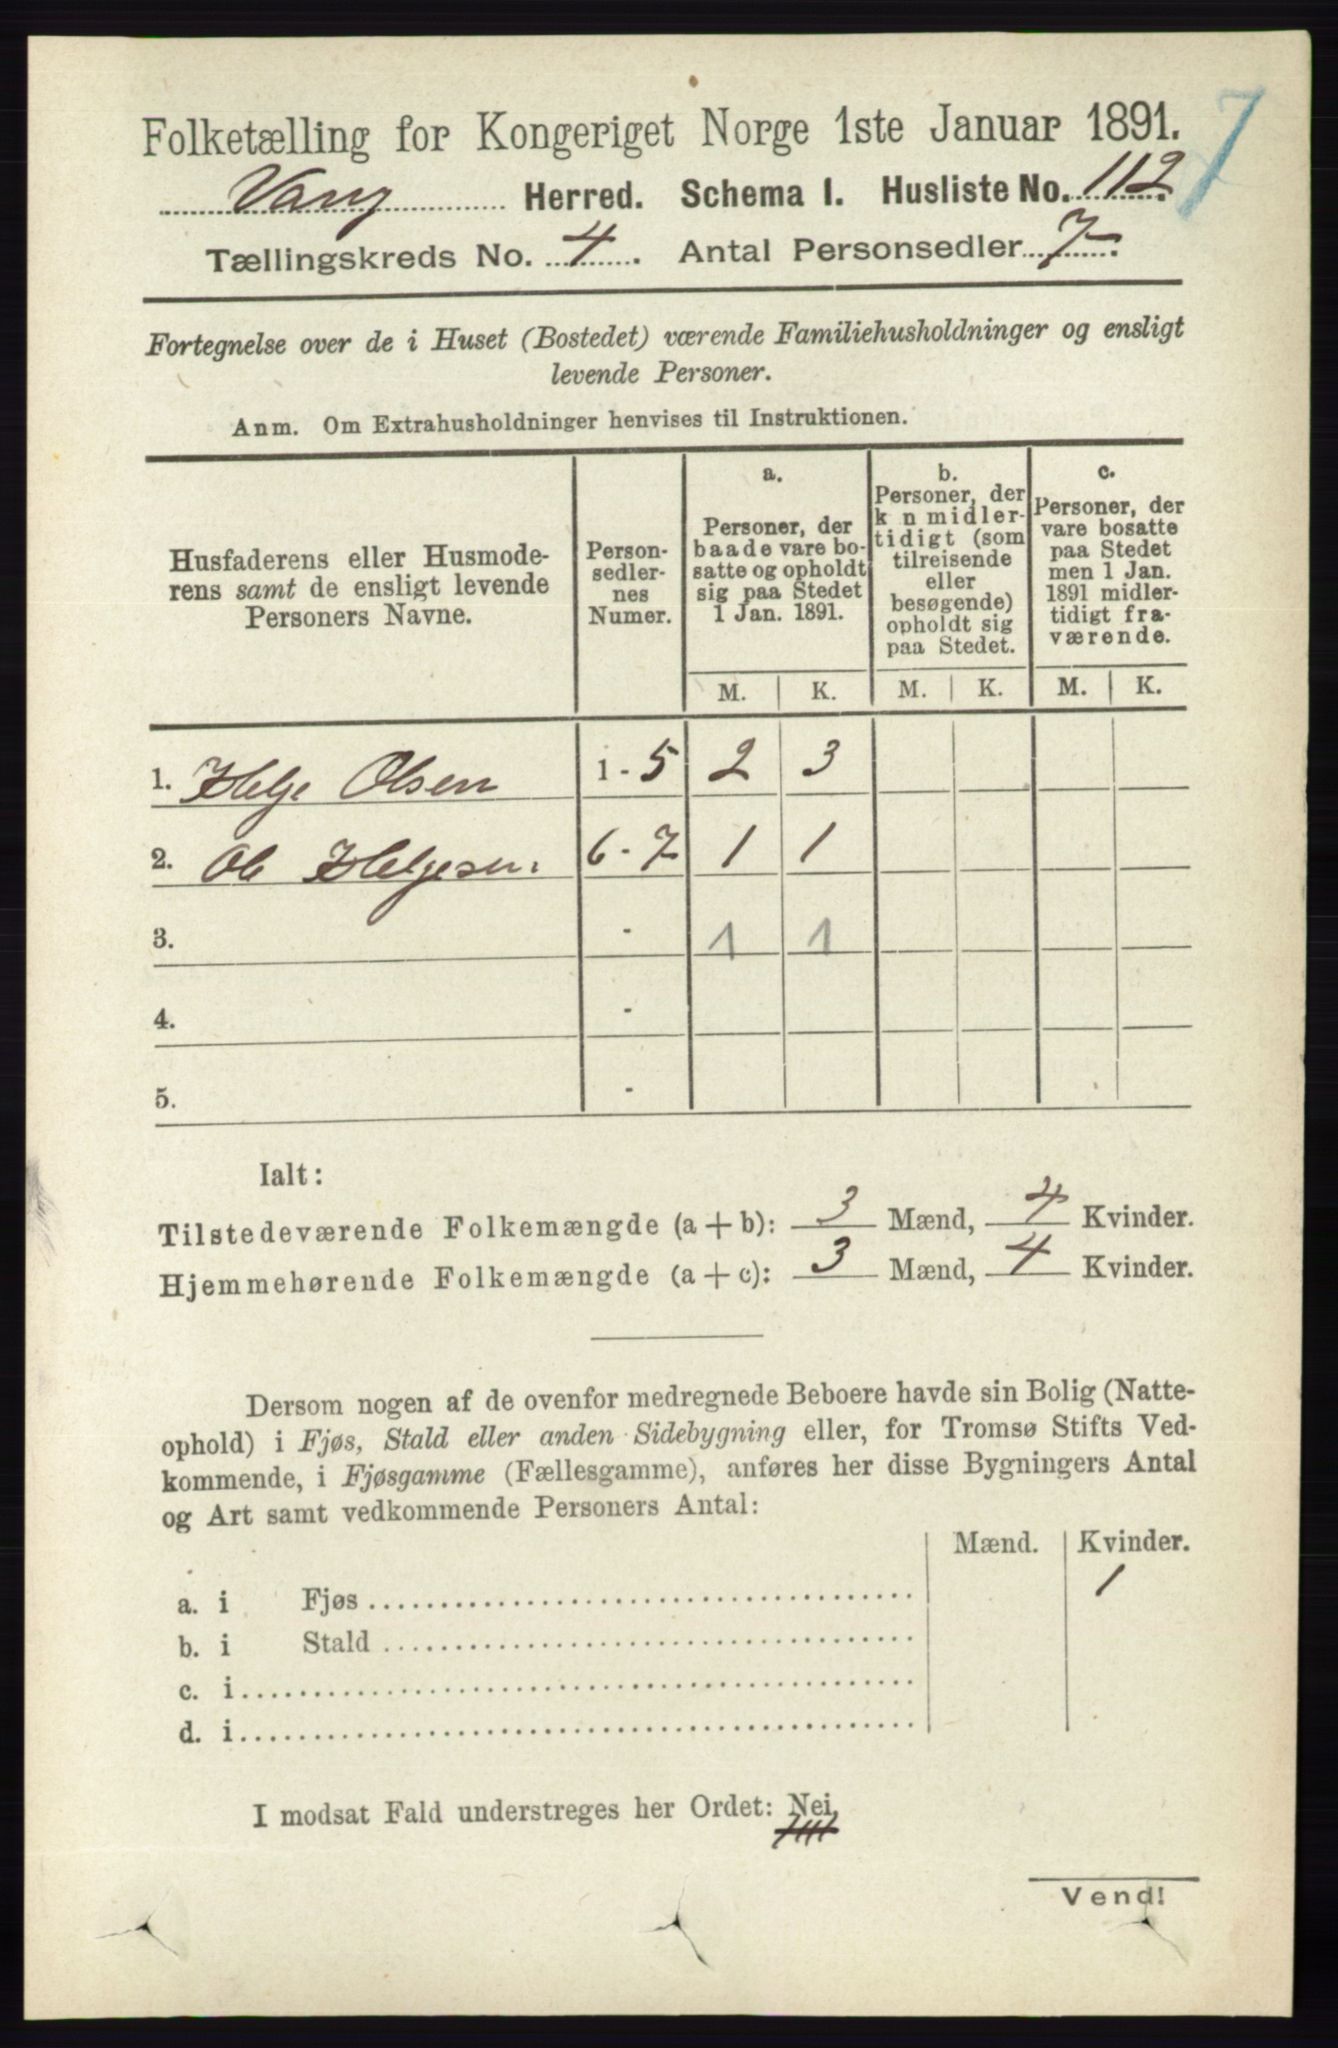 Folketælling for Kongeriget Norge 1ste Januar 1891. 7
Vang Herred. Schema I. Husliste No. 112.
Tællingskreds No. 4. Antal Personsedler 7.
Fortegnelse over de i Huset (Bostedet) værende Familiehusholdninger og ensligt
levende Personer.
Anm. Om Extrahusholdninger henvises til Instruktionen.
Husfaderens eller Husmode-
rens samt de ensligt levende
Personers Navne.
Person-
sedler-
nes
Numer.
a.
Personer, der
baade vare bo-
satte og opholdt
sig paa Stedet
1 Jan. 1891.
b.
Personer, der
k n midler-
tidigt (som
tilreisende
eller
besøgende)
opholdt sig
paa Stedet.
c.
Personer, der
vare bosatte
paa Stedet
men 1 Jan.
1891 midler-
tidigt fra-
værende.
M. K. M. K. M. K.
1. Helge Olsen 1 - 5 2 3
2. Ole Helgesen. 6 - 7 1 1
3. - 1 1
4. -
5. -
Ialt:
Tilstedeværende Folkemængde (a + b): 3 Mænd, 4 Kvinder.
Hjemmehørende Folkemængde (a + c): 3 Mænd, 4 Kvinder.
Dersom nogen af de ovenfor medregnede Beboere havde sin Bolig (Natte-
ophold) i Fjøs, Stald eller anden Sidebygning eller, for Tromsø Stifts Ved-
kommende, i Fjøsgamme (Fællesgamme), anføres her disse Bygningers Antal
og Art samt vedkommende Personers Antal:
Mænd. Kvinder.
a. i Fjøs 1
b. i Stald
c. i
d. i
I modsat Fald understreges her Ordet: Nei.
Vend!